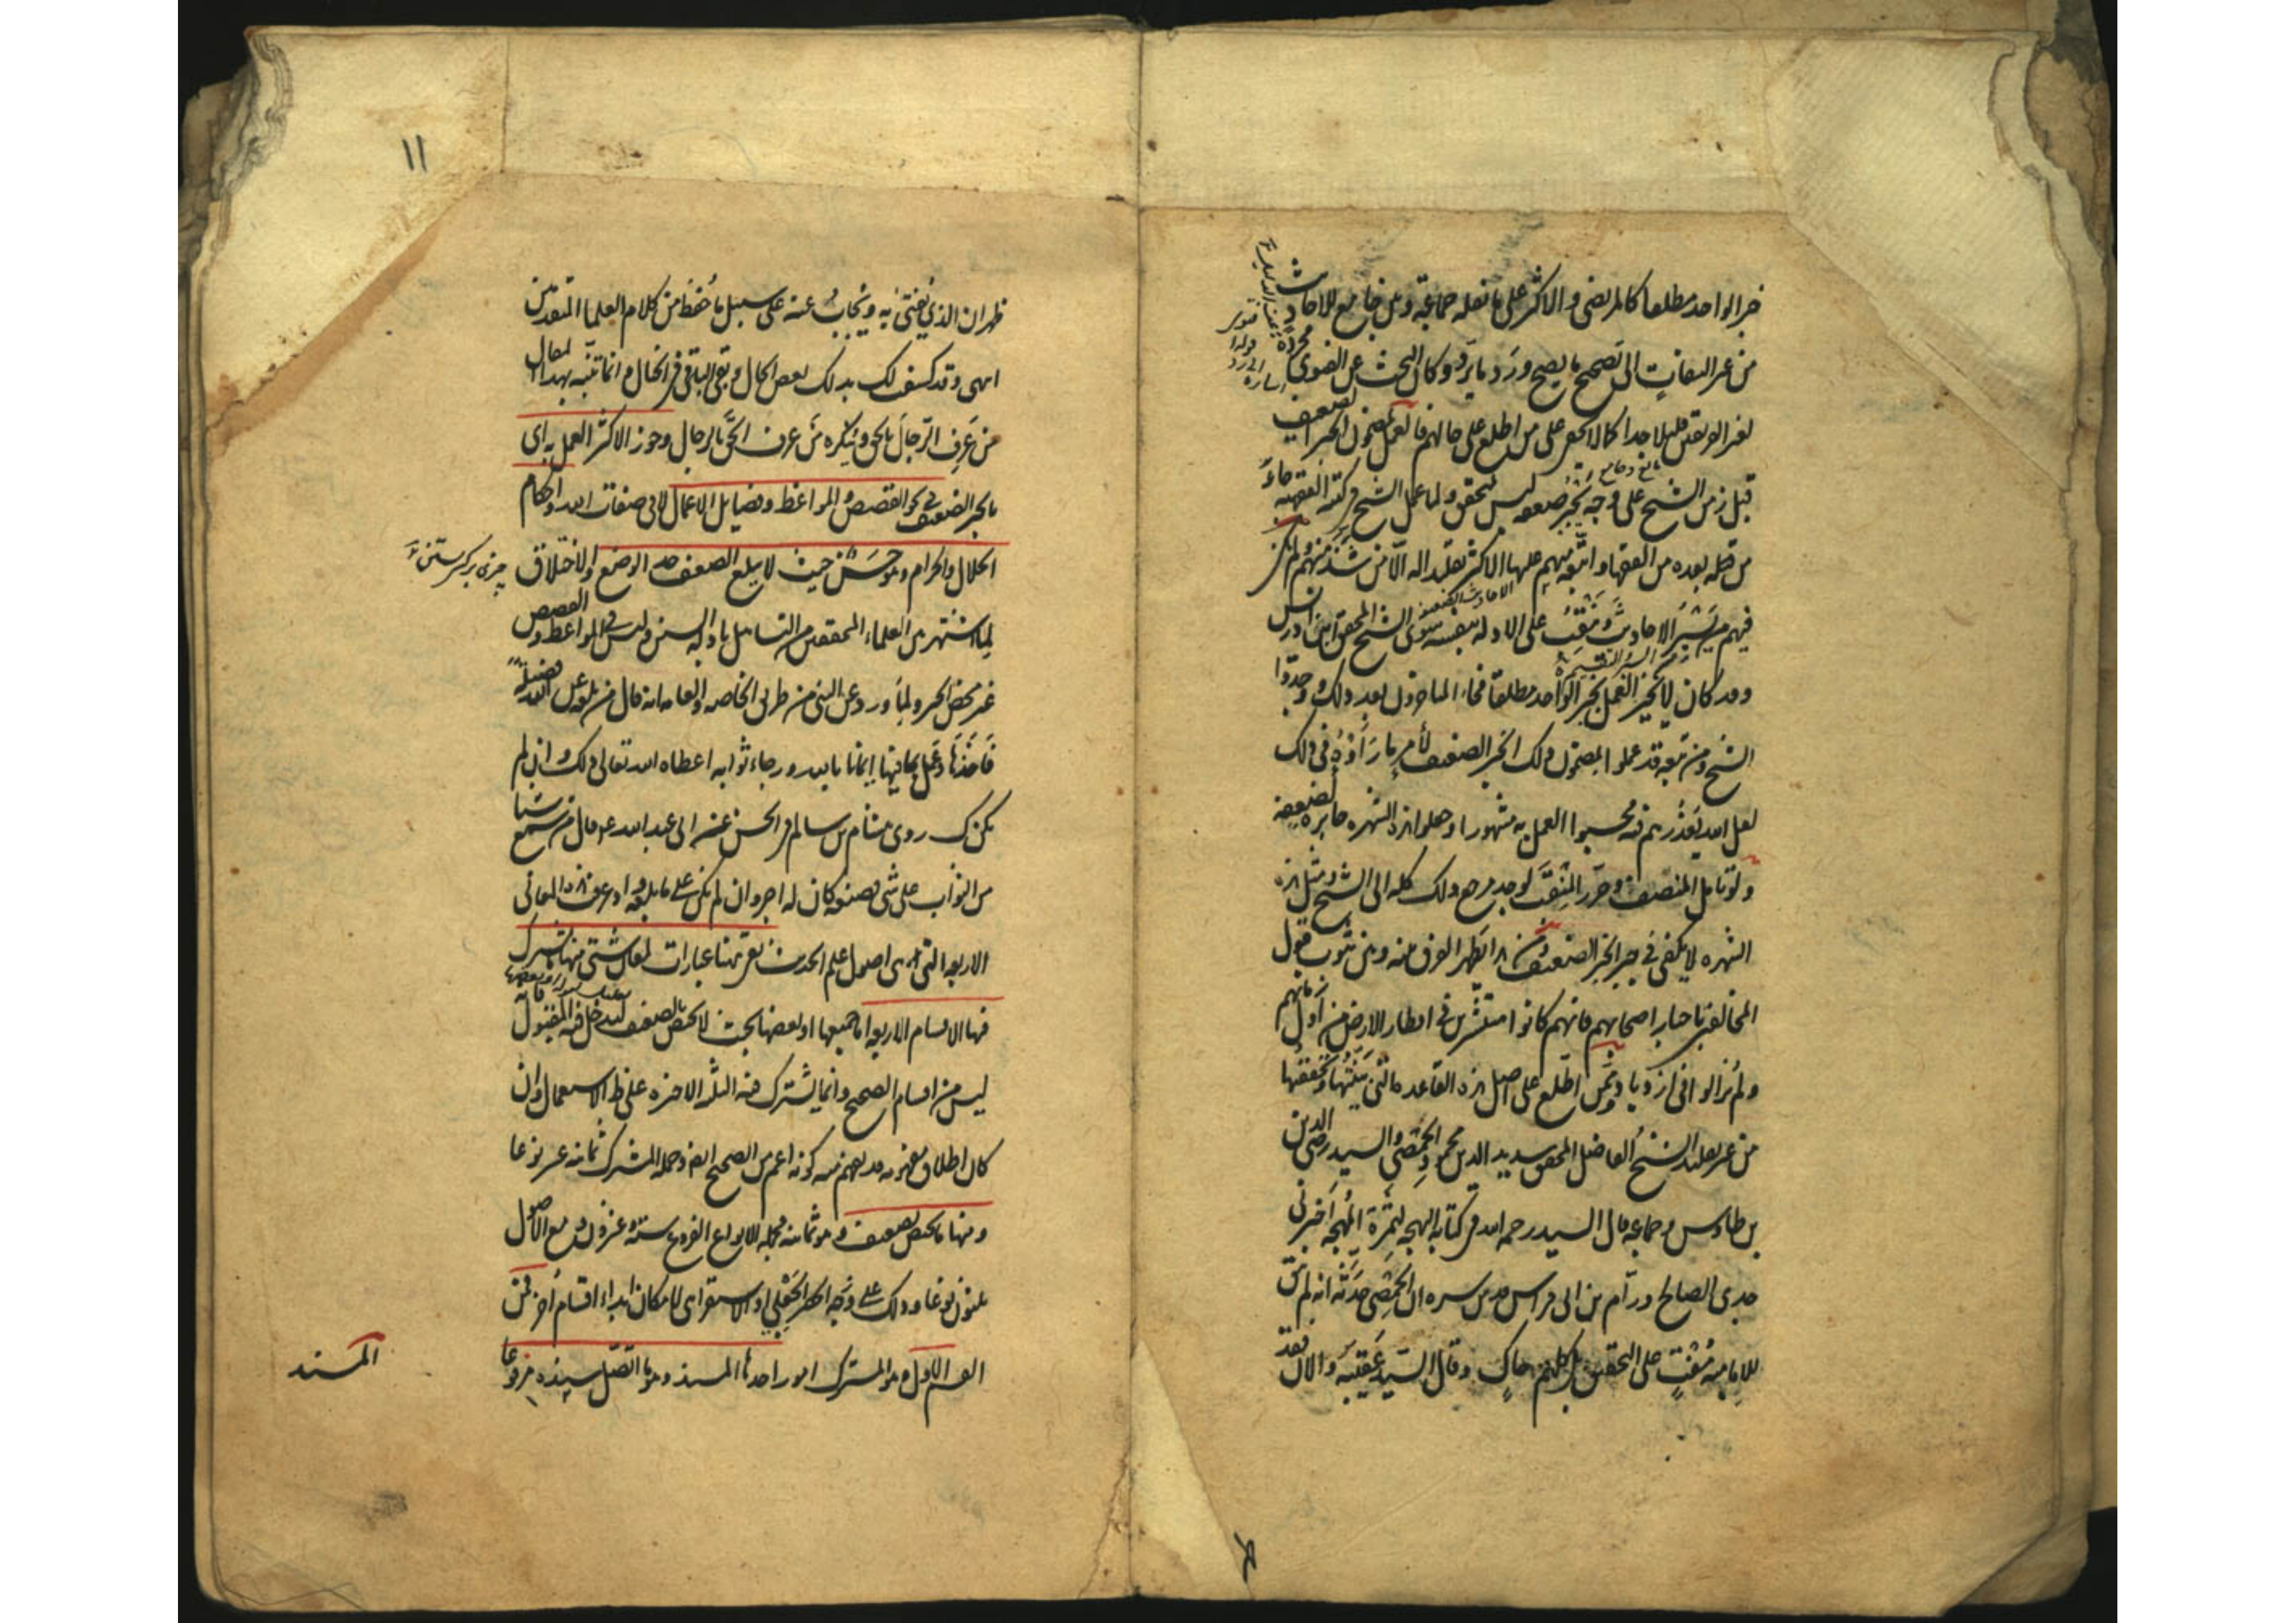 خبر الواحد مطلقا كالمرتضى والاكثر على ما نقله جماعة وبين جامع للاحاديث
من غير التفات الى تصحيح ما يصح ورد ما يرد وكان البحث عن الفتوى مجردة
لغير الفريقين قليلا جدا كما لا يخفى على من اطلع على حالهم فالعمل بمضمون الخبر الضعيف
قبل زمن الشيخ على وجه يجبر ضعفه ليس بمتحقق ولما عمل الشيخ في كتبه الفقهية جاء
من بعده من الفقهاء واتبعه منهم عليها الاكثر تقليدا له الا من شذ منهم ولم يكن
فيهم من يسبر الاحاديث وينقب على الادلة بنفسه سوى الشيخ المحقق ابن ادريس
وقد كان لا يجيز العمل بخبر الواحد مطلقا فجاء المتاخرون بعد ذلك ووجدوا
الشيخ ومن تبعه قد عملوا بمضمون ذلك الخبر الضعيف لأمر ما رأوه في ذلك
لعل الله يعذرهم فيه فحسبوا العمل به مشهورا وجعلوا هذه الشهرة جابرة لضعفه
ولو تامل المنصف وحرر المنقب لوجد مرجع ذلك كله الى الشيخ ومثل هذه
الشهرة لا يكفي في جبر الخبر الضعيف ومن هنا يظهر الفرق بينه وبين ثبوت فتوى
المخالفين باخبار اصحابهم فانهم كانوا منتشرين في اقطار الارض من اول زمانهم
ولم يزالوا في ازدياد وممن اطلع على اصل هذه القاعدة التي بينتها وتحققتها
من غير تقليد الشيخ الفاضل المحقق سديد الدين محمود الحمصي والسيد رضي الدين
بن طاوس وجماعة قال السيد رحمه الله في كتابه البهجة لثمرة المهجة اخبرني
جدي الصالح ورام بن ابي فراس قدس سره ان الحمصي حدثه انه لم يبق
للامامية مفت على التحقيق بل كلهم حاك وقال السيد عقيبه والآن فقد
١١
ظهر ان الذي يفتى به ويجاب عنه على سبيل ما حفظ من كلام العلما المتقدمين
انتهى وقد كشفت لك بذلك بعض الحال وبقي الباقي في الخيال وانما تنبه بهذا المقال
من عرف الرجال بالحق وينكره من عرف الحق بالرجال وجوز الاكثر العمل به اي
بالخبر الضعيف في نحو القصص والمواعظ وفضايل الاعمال لا في صفات الله واحكام
الحلال والحرام وهو حسن حيث لا يبلغ الضعف حد الوضع والاختلاق
لما اشتهر بين العلماء المحققين من التساهل بادلة السنن وليس في المواعظ والقصص
غير محض الخير ولما ورد عن النبي من طريق الخاصة والعامة انه قال من بلغه عن الله فضيلة
فاخذها وعمل بما فيها ايمانا بالله ورجاء ثوابه اعطاه الله تعالى ذلك وان لم
يكن كذلك روى هشام بن سالم في الحسن عن ابي عبد الله ع قال من سمع شيئا
من الثواب على شي فصنعه كان له اجره وان لم يكن على ما بلغه اذ عرفت هذا المعاني
الاربعة التي هي اصول علم الحديث بقي هنا عبارات لمعان شتى منها يشترك
فيها الاقسام الاربعة اما جميعها او بعضها بحيث لا يختص بالضعيف ليدخل فيه المقبول فانه
ليس من اقسام الصحيح وانما يشترك فيه الثلثة الاخيرة على الاستعمال وان
كان اطلاق مفهومه قد يفهم منه كونه اعم من الصحيح ايضا وجملة المشترك ثمانية عشر نوعا
ومنها ما يختص بالضعيف وهو ثمانية فجملة الانواع الفروع ستة وعشرون ومع الاصول
ثلثون نوعا وذلك على وجه الحصر الجعلي او الاستقرائي لامكان ابداء اقسام اخر فمن
القسم الاول وهو المشترك امور احدها المسند وهو ما اتصل سنده مرفوعا
المسند